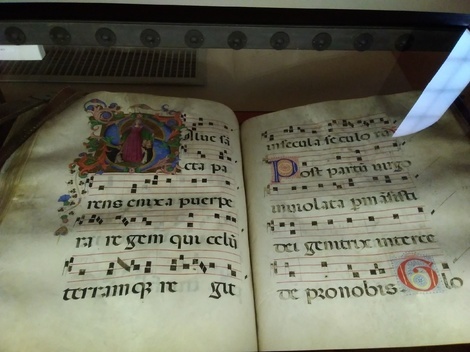 Salue sā
cta pa
rens enixa puerpe
ra re gem qui celū
terramqꝫ re git
in secula seculo
Post partū uirgo
inuiolata ꝑmāsisti
dei genitrix interce
de pro nobis Glo